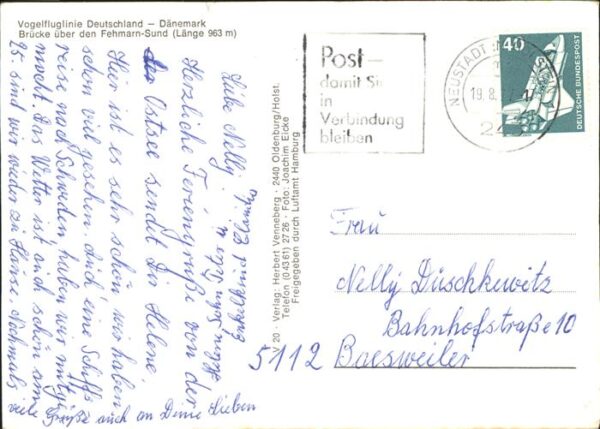 Vogelfluglinie Deutschland – Dänemark
Brücke über den Fehmarn-Sund (Länge 963 m)
Post –
damit Sie
in
Verbindung
bleiben
NEUSTADT
19.8.
40
DEUTSCHE BUNDESPOST
V 20 · Verlag: Herbert Venneberg · 2440 Oldenburg/Holst.
Telefon (0 43 61) 27 26 · Foto: Joachim Eicke
Freigegeben durch Luftamt Hamburg
Liebe Nelly!
Herzliche Feriengrüße von der
Ostsee sendet Dir Helene.
Hier ist es sehr schön, wir haben
schon viel gesehen. Auch eine Schiffs
reise nach Schweden haben wir mitge
macht. Das Wetter ist auch schön am
25. sind wir wieder zu Hause. Nochmals
viele Grüße auch an Deine Lieben
Frau
Nelly Düschkewitz
Bahnhofstraße 10
5112 Baesweiler